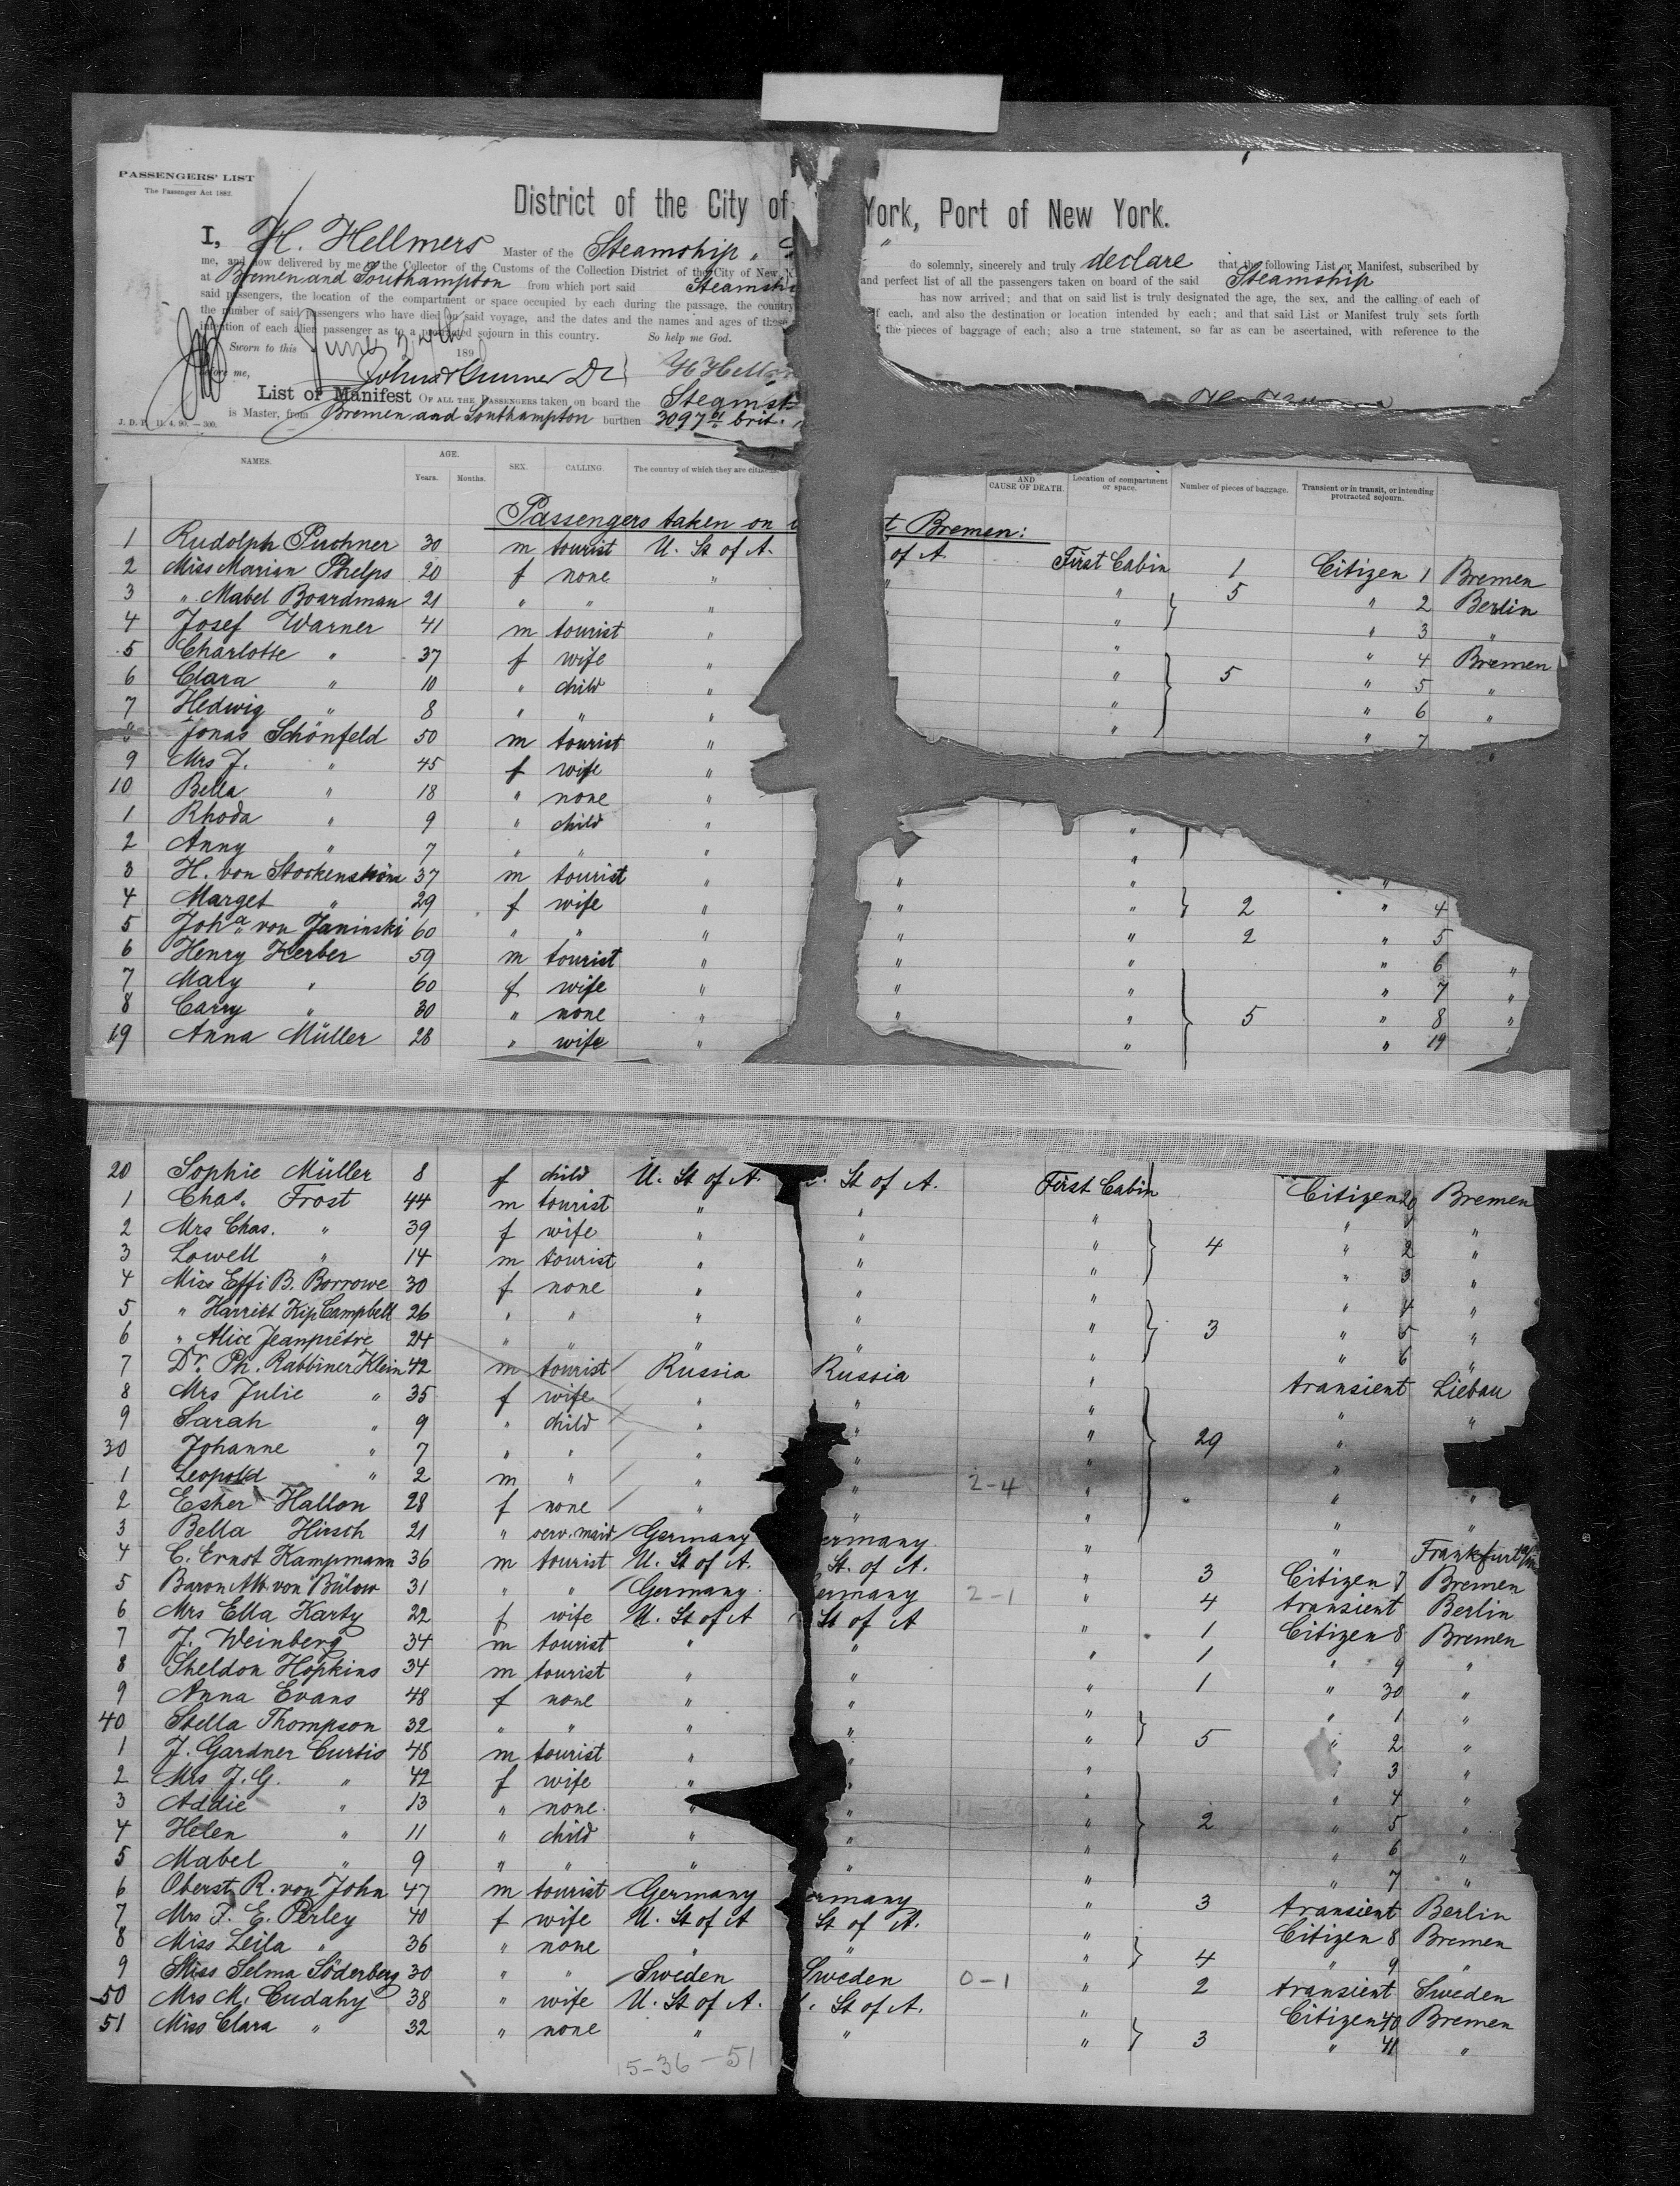 PASSENGERS' LIST
The Passenger Act 1882.
District of the City of York, Port of New York.
I, H. Hellmers Master of the Steamship " " do solemnly, sincerely and truly declare that the following List or Manifest, subscribed by
me, and now delivered by me to the Collector of the Customs of the Collection District of the City of New and perfect list of all the passengers taken on board of the said Steamship
at Bremen and Southampton from which port said Steamship has now arrived; and that on said list is truly designated the age, the sex, and the calling of each of
said passengers, the location of the compartment or space occupied by each during the passage, the country of each, and also the destination or location intended by each; and that said List or Manifest truly sets forth
the number of said passengers who have died on said voyage, and the dates and the names and ages of these the pieces of baggage of each; also a true statement, so far as can be ascertained, with reference to the
intention of each alien passenger as to a protracted sojourn in this country. So help me God.
Sworn to this June 189
before me, H Hellm
List or Manifest OF ALL THE PASSENGERS taken on board the Steamsh
is Master, from Bremen and Southampton burthen 3097 brit.
J. D. P. 11. 4. 90. — 300.
NAMES. AGE. Years. Months. SEX. CALLING. The country of which they are citizens. AND CAUSE OF DEATH. Location of compartment or space. Number of pieces of baggage. Transient or in transit, or intending protracted sojourn.
Passengers taken on t Bremen:
1 Rudolph Puchner 30 m tourist U. St of A. of A First Cabin 1 Citizen 1 Bremen
2 Miss Marian Phelps 20 f none " " " 5 " 2 Berlin
3 " Mabel Boardman 21 " " " " " 3 "
4 Josef Warner 41 m tourist " " " 4 Bremen
5 Charlotte " 37 f wife " " 5 " 5 "
6 Clara " 10 " child " " " 6 "
7 Hedwig " 8 " " " " " 7 "
8 Jonas Schönfeld 50 m tourist "
9 Mrs J. " 45 f wife "
10 Bella " 18 " none "
1 Rhoda " 9 " child " "
2 Anny " 7 " " " "
3 H. von Stockenström 37 m tourist " " " "
4 Marget " 29 f wife " " " 2 " 4
5 Joha von Janinski 60 " " " " " 2 " 5
6 Henry Kerber 59 m tourist " " " " 6 "
7 Mary " 60 f wife " " " " 7 "
8 Carry " 30 " none " " " 5 " 8 "
19 Anna Müller 28 " wife " " " 19 "
20 Sophie Müller 8 f child U. St of A. St of A. First Cabin Citizen 20 Bremen
1 Chas. Frost 44 m tourist " " " " 1 "
2 Mrs Chas. " 39 f wife " " " 4 " 2 "
3 Lowell " 14 m tourist " " " " 3 "
4 Miss Effi B. Borrowe 30 f none " " " " 4 "
5 " Harriet Kip Campbell 26 " " " " " 3 " 5 "
6 " Alice Jeanprêtre 24 " " " " " " 6 "
7 Dr. Ph. Rabbiner Klein 42 m tourist Russia Russia " transient Liebau
8 Mrs Julie " 35 f wife " " " " "
9 Sarah " 9 " child " " " 29 "
30 Johanne " 7 " " " " " "
1 Leopold " 2 m " " " 2-4 " " "
2 Esher Hallon 28 f none " " " " "
3 Bella Hirsch 21 " serv. maid Germany ermany " " Frankfurt a/m
4 C. Ernst Kampmann 36 m tourist U. St of A. St. of A. " 3 Citizen 7 Bremen
5 Baron Alb. von Bülow 31 " " Germany ermany 2-1 " 4 transient Berlin
6 Mrs Ella Karty 22 f wife U. St of A St of A " 1 Citizen 8 Bremen
7 J. Weinberg 34 m tourist " " " 1 " 9 "
8 Sheldon Hopkins 34 m tourist " " " 1 " 30 "
9 Anna Evans 48 f none " " " " 1 "
40 Stella Thompson 32 " " " " " 5 " 2 "
1 J. Gardner Curtis 48 m tourist " " " " 3 "
2 Mrs J. G. " 42 f wife " " " " 4 "
3 Addie " 13 " none " " " 2 " 5 "
4 Helen " 11 " child " " " " 6 "
5 Mabel " 9 " " " " " " 7 "
6 Oberst R. von John 47 m tourist Germany ermany " 3 transient Berlin
7 Mrs F. E. Perley 40 f wife U. St of A St of A. " Citizen 8 Bremen
8 Miss Leila " 36 " none " " " 4 " 9 "
9 Miss Selma Söderberg 30 " " Sweden Sweden 0-1 " 2 transient Sweden
50 Mrs M. Cudahy 38 " wife U. St of A. St of A. " Citizen 40 Bremen
51 Miss Clara " 32 " none " " " 3 " 41 "
15-36-51